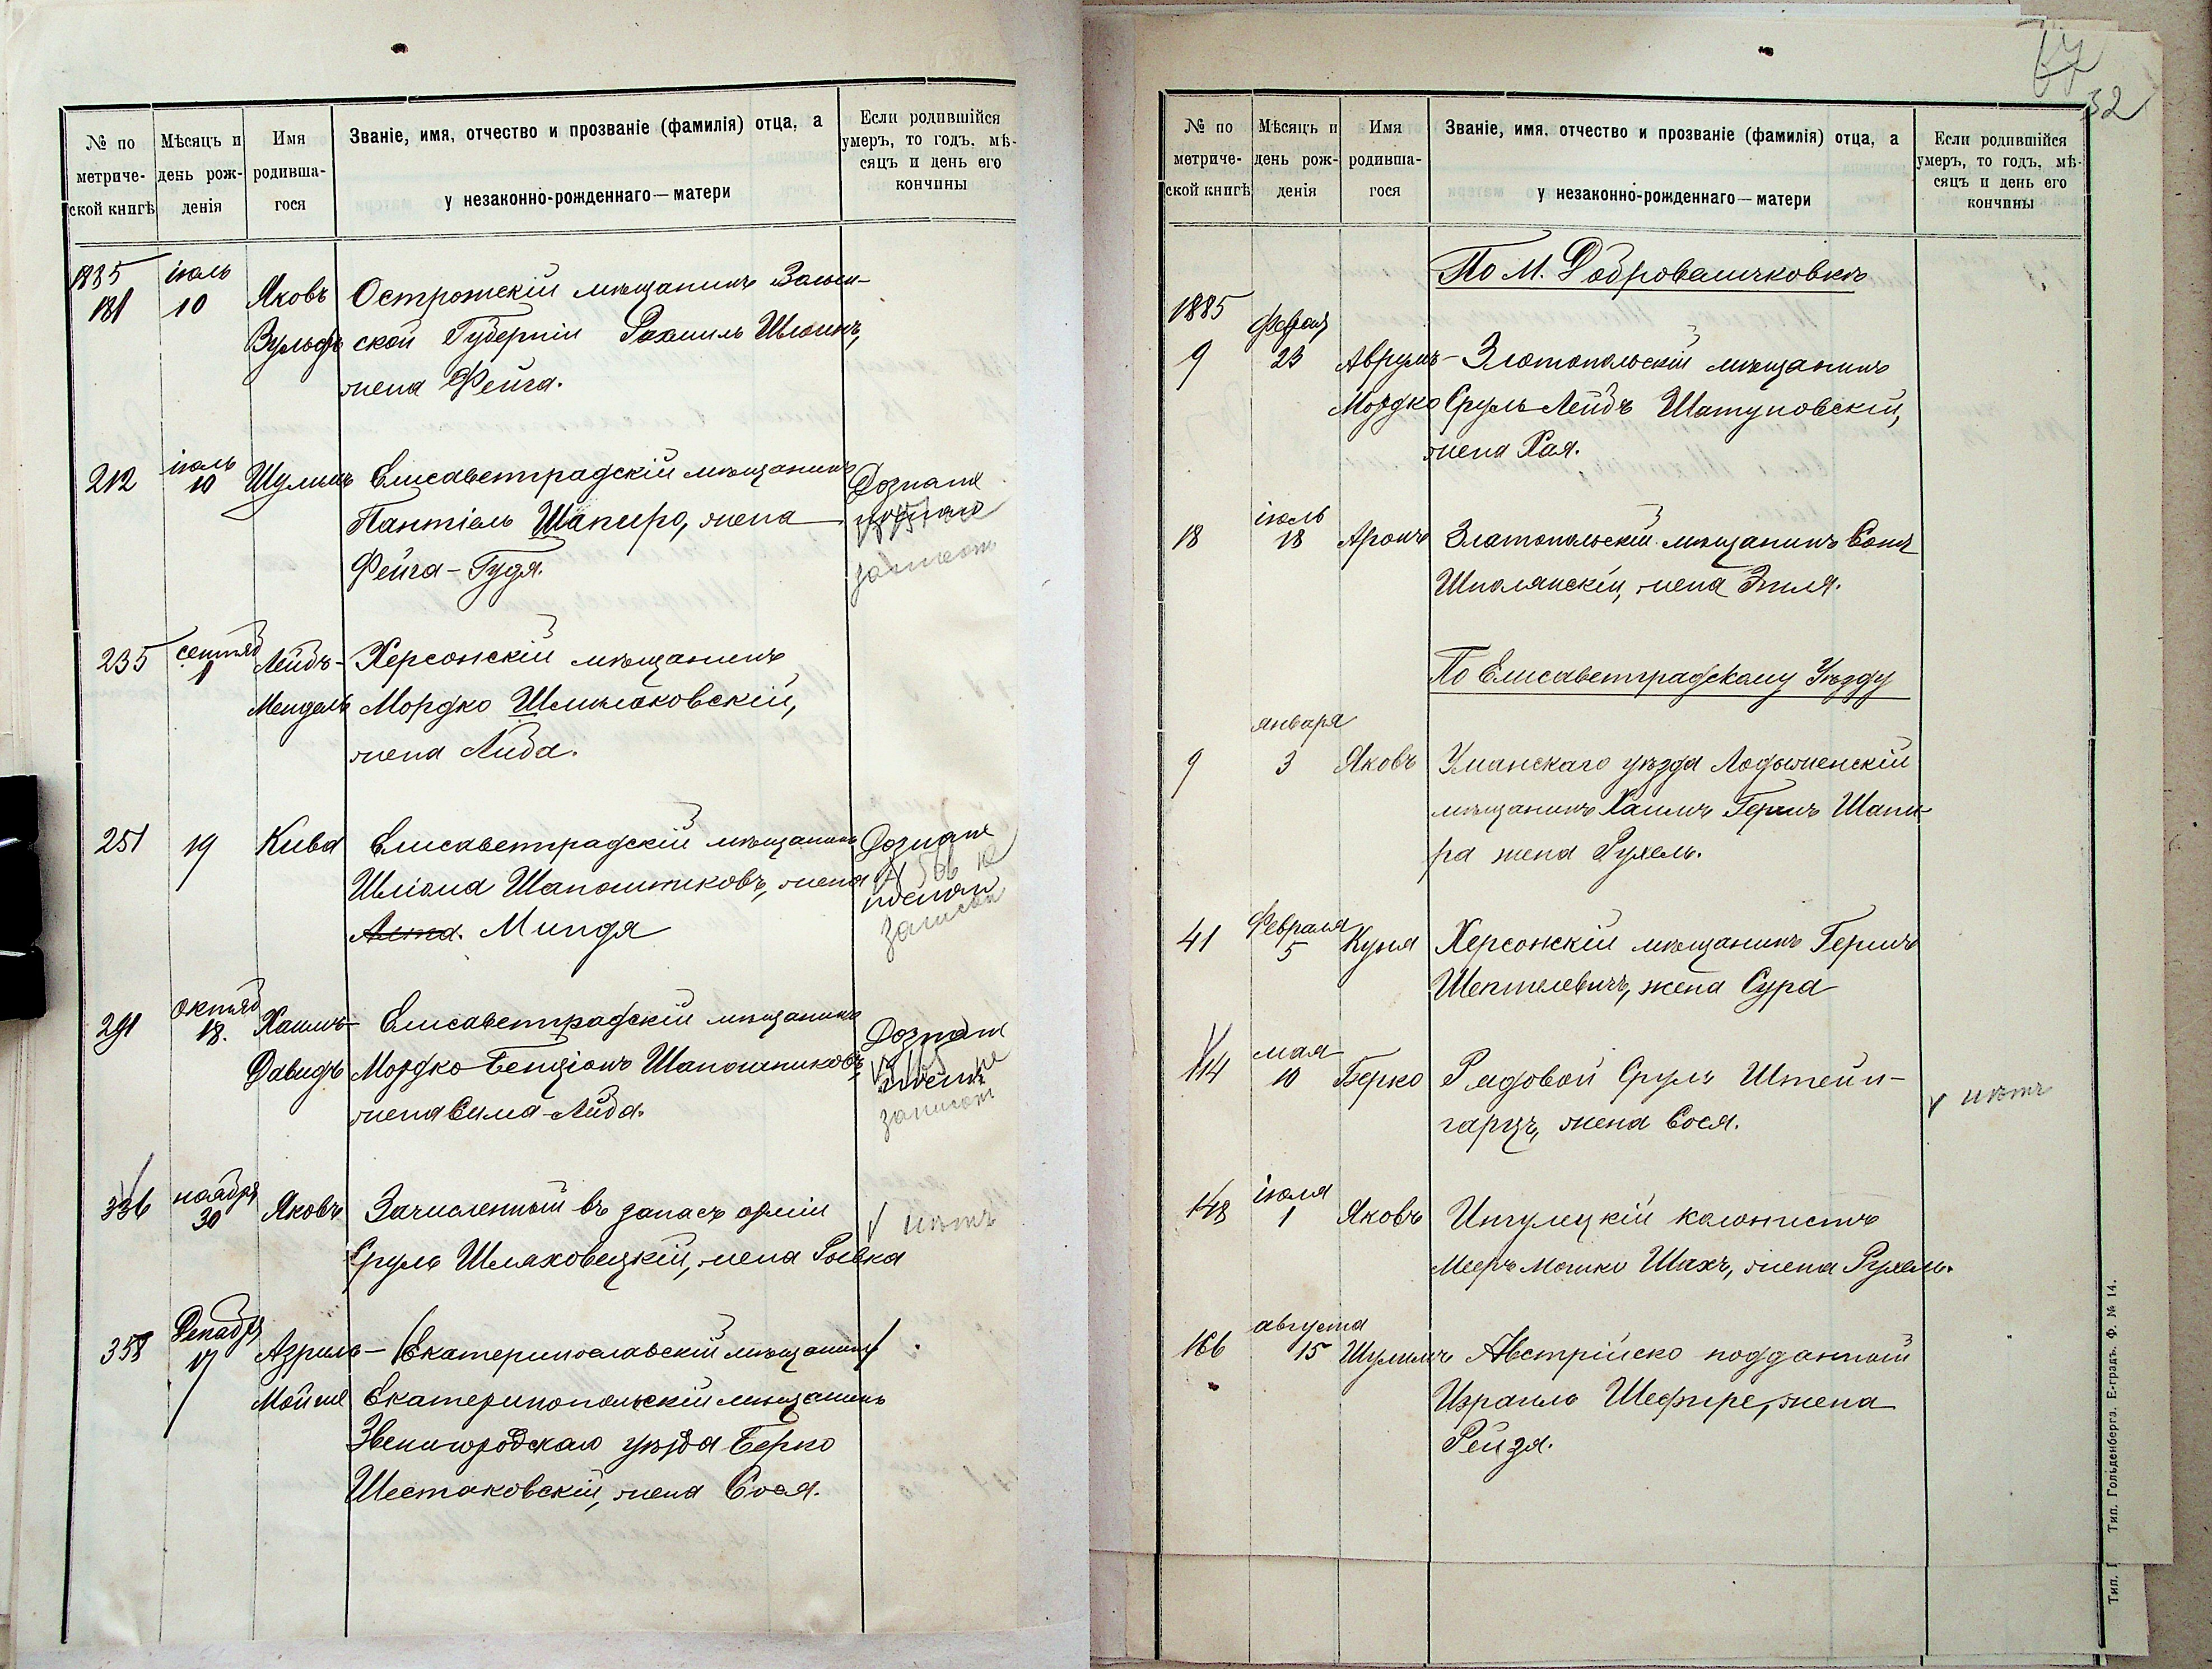 № по метриче-ской книгѣ
Мѣсяцъ и день рож-денія
Имя родивша-гося
Званіе, имя, отчество и прозваніе (фамилія) отца, а у незаконно-рожденнаго—матери
Если родившійся умеръ, то годъ, мѣ-сяцъ и день его кончины
1885 іюль
181 10 Яковъ Острожскій мѣщанинъ Волын-
Вульфъ ской Губерніи Рахмиль
жена Фейга.
212 іюль 10 Шулимъ Елисаветградскій мѣщанинъ Дознаніе
Пантіель Шапиро, жена
Фейга-Гудя.
235 сентяб 1 Лейбъ- Херсонскій мѣщанинъ
Мендель Мордко Шмилаковскій,
жена Либа.
251 19 Кива Елисаветградскій мѣщанинъ Дознаніе
Шліома Шапошниковъ, жена
Минця
291 октяб 18. Хаимъ- Елисаветградскій мѣщанинъ Дознаніе
Давидъ Мордко-Бенціонъ Шапошниковъ,
жена Сима-Либа.
336 ноября 30 Яковъ Зачисленный въ запасъ арміи нѣтъ
Сруль Шляховецкій, жена Рывка
358 Декабря 17 Азриль- Екатеринославскій мѣщанинъ
Мойше Екатеринопольскій мѣщанинъ
Звенигородскаго уѣзда Берко
Шестаковскій, жена Сося.
32
№ по метриче-ской книгѣ
Мѣсяцъ и день рож-денія
Имя родивша-гося
Званіе, имя, отчество и прозваніе (фамилія) отца, а у незаконно-рожденнаго—матери
Если родившійся умеръ, то годъ, мѣ-сяцъ и день его кончины
По М. Добровеличковкѣ
1885
9 Феврал 23 Аврумъ- Златопольскій мѣщанинъ
Мордко Сруль-Лейбъ Шатуновскій,
жена Хая.
18 іюль 18 Аронъ Златопольскій мѣщанинъ
Шполянскій, жена Этля.
По Елисаветградскому Уѣзду
января
9 3 Яковъ Уманскаго уѣзда Лодыженскій
мѣщанинъ Хаимъ Гершъ Шапи-
ра жена Рухель.
41 Февраля 5 Куня Херсонскій мѣщанинъ Гершъ
Шептелевичъ, жена Сура
114 мая 10 Берко Рядовой Сруль Штейн-
гарцъ, жена Сося. нѣтъ
148 іюля 1 Яковъ Ингулецкій колонистъ
Мееръ Мошко Шахъ, жена Рухель.
августа
166 15 Шулимъ Австрійско подданный
Израиль Шефире, жена
Рейзя.
Тип. Гольденберга. Е-градъ. Ф. № 14.
Тип. Г